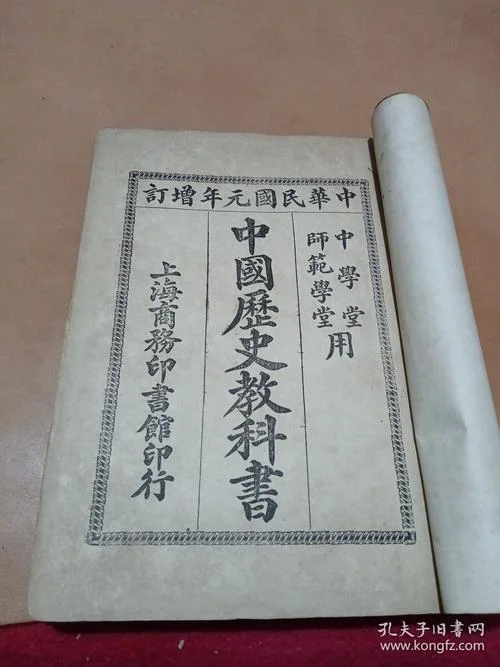 中華民國元年增訂
中學堂
師範學堂
用
中國歷史教科書
上海商務印書館印行
孔夫子旧书网
www.kongfz.com